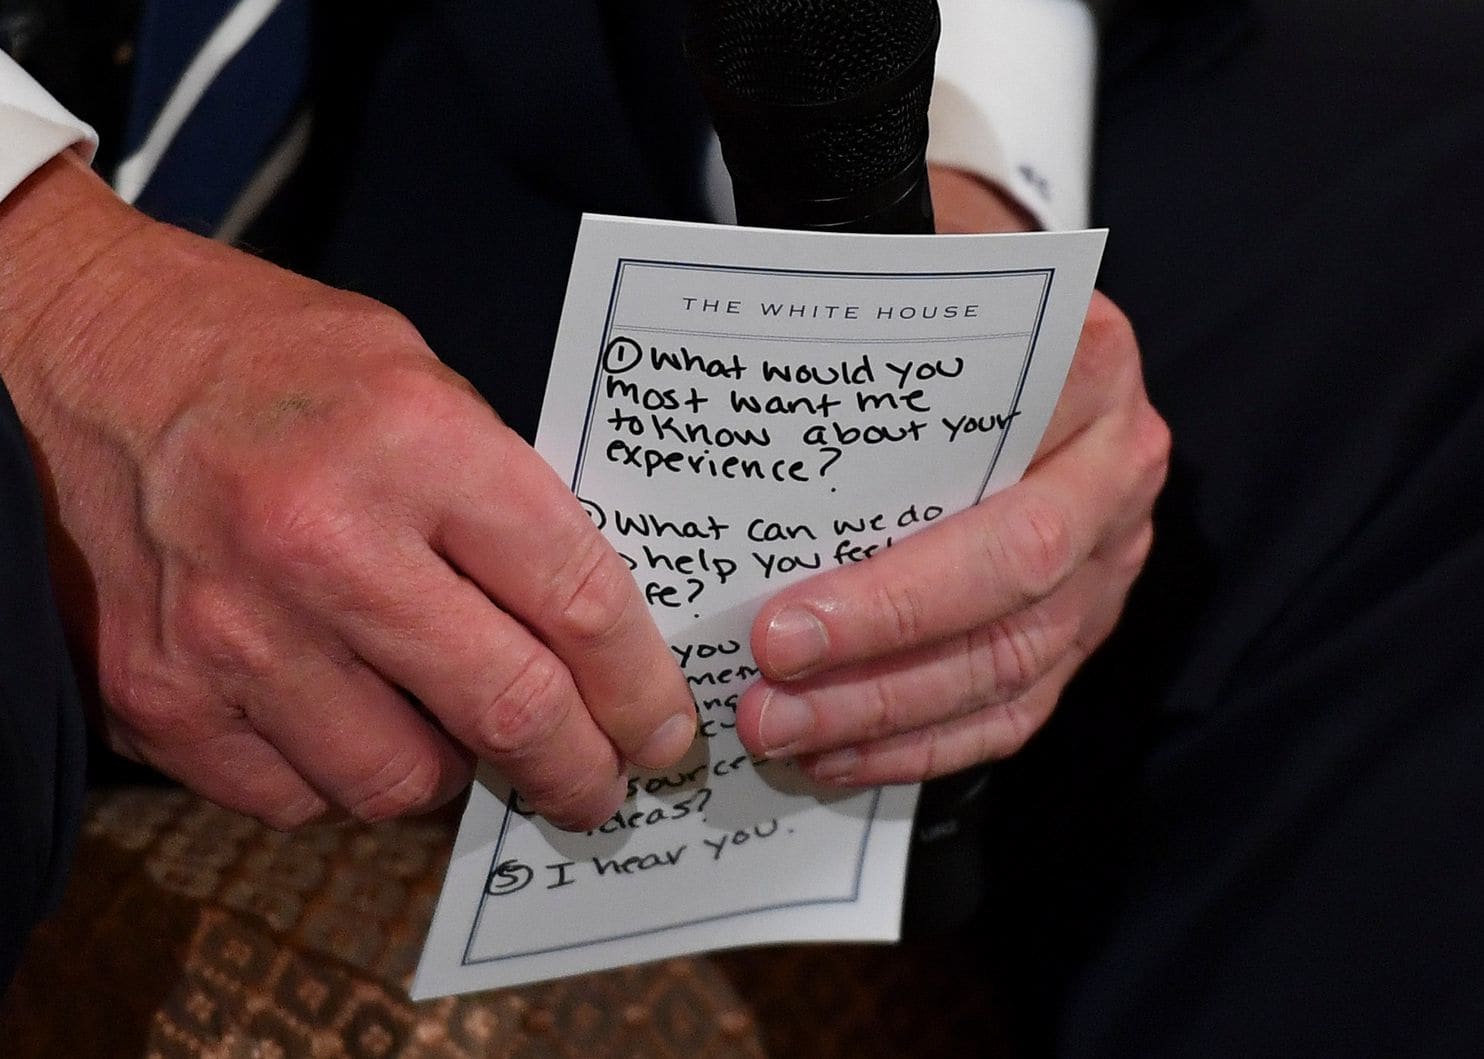 THE WHITE HOUSE
① What would you
most want me
to know about your
experience?
What can we do
help you feel
fe?
you
mem
ng
sources?
ideas?
⑤ I hear you.